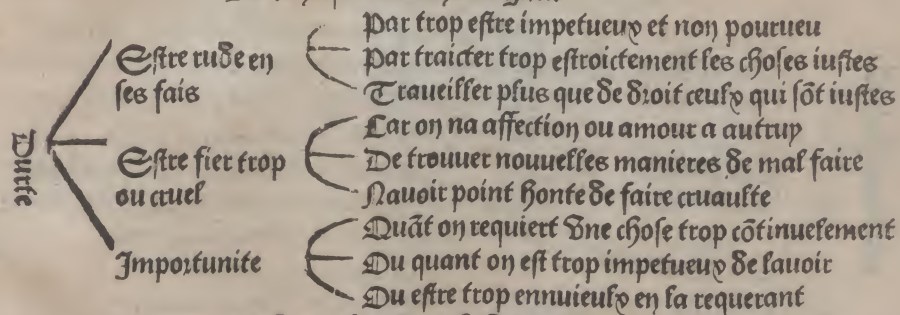 Durte
Estre rude en
ses fais
Par trop estre impetueux et non pourueu
Par traicter trop estroictement les choses iustes
Traueiller plus que de droit ceulx qui sõt iustes
Estre fier trop
ou cruel
Car on na affection ou amour a autruy
De trouuer nouuelles manieres de mal faire
Nauoir point honte de faire cruaulte
Importunite
Quãt on requiert vne chose trop cõtinuelement
Ou quant on est trop impetueux de lauoir
Ou estre trop ennuieulx en la requerant